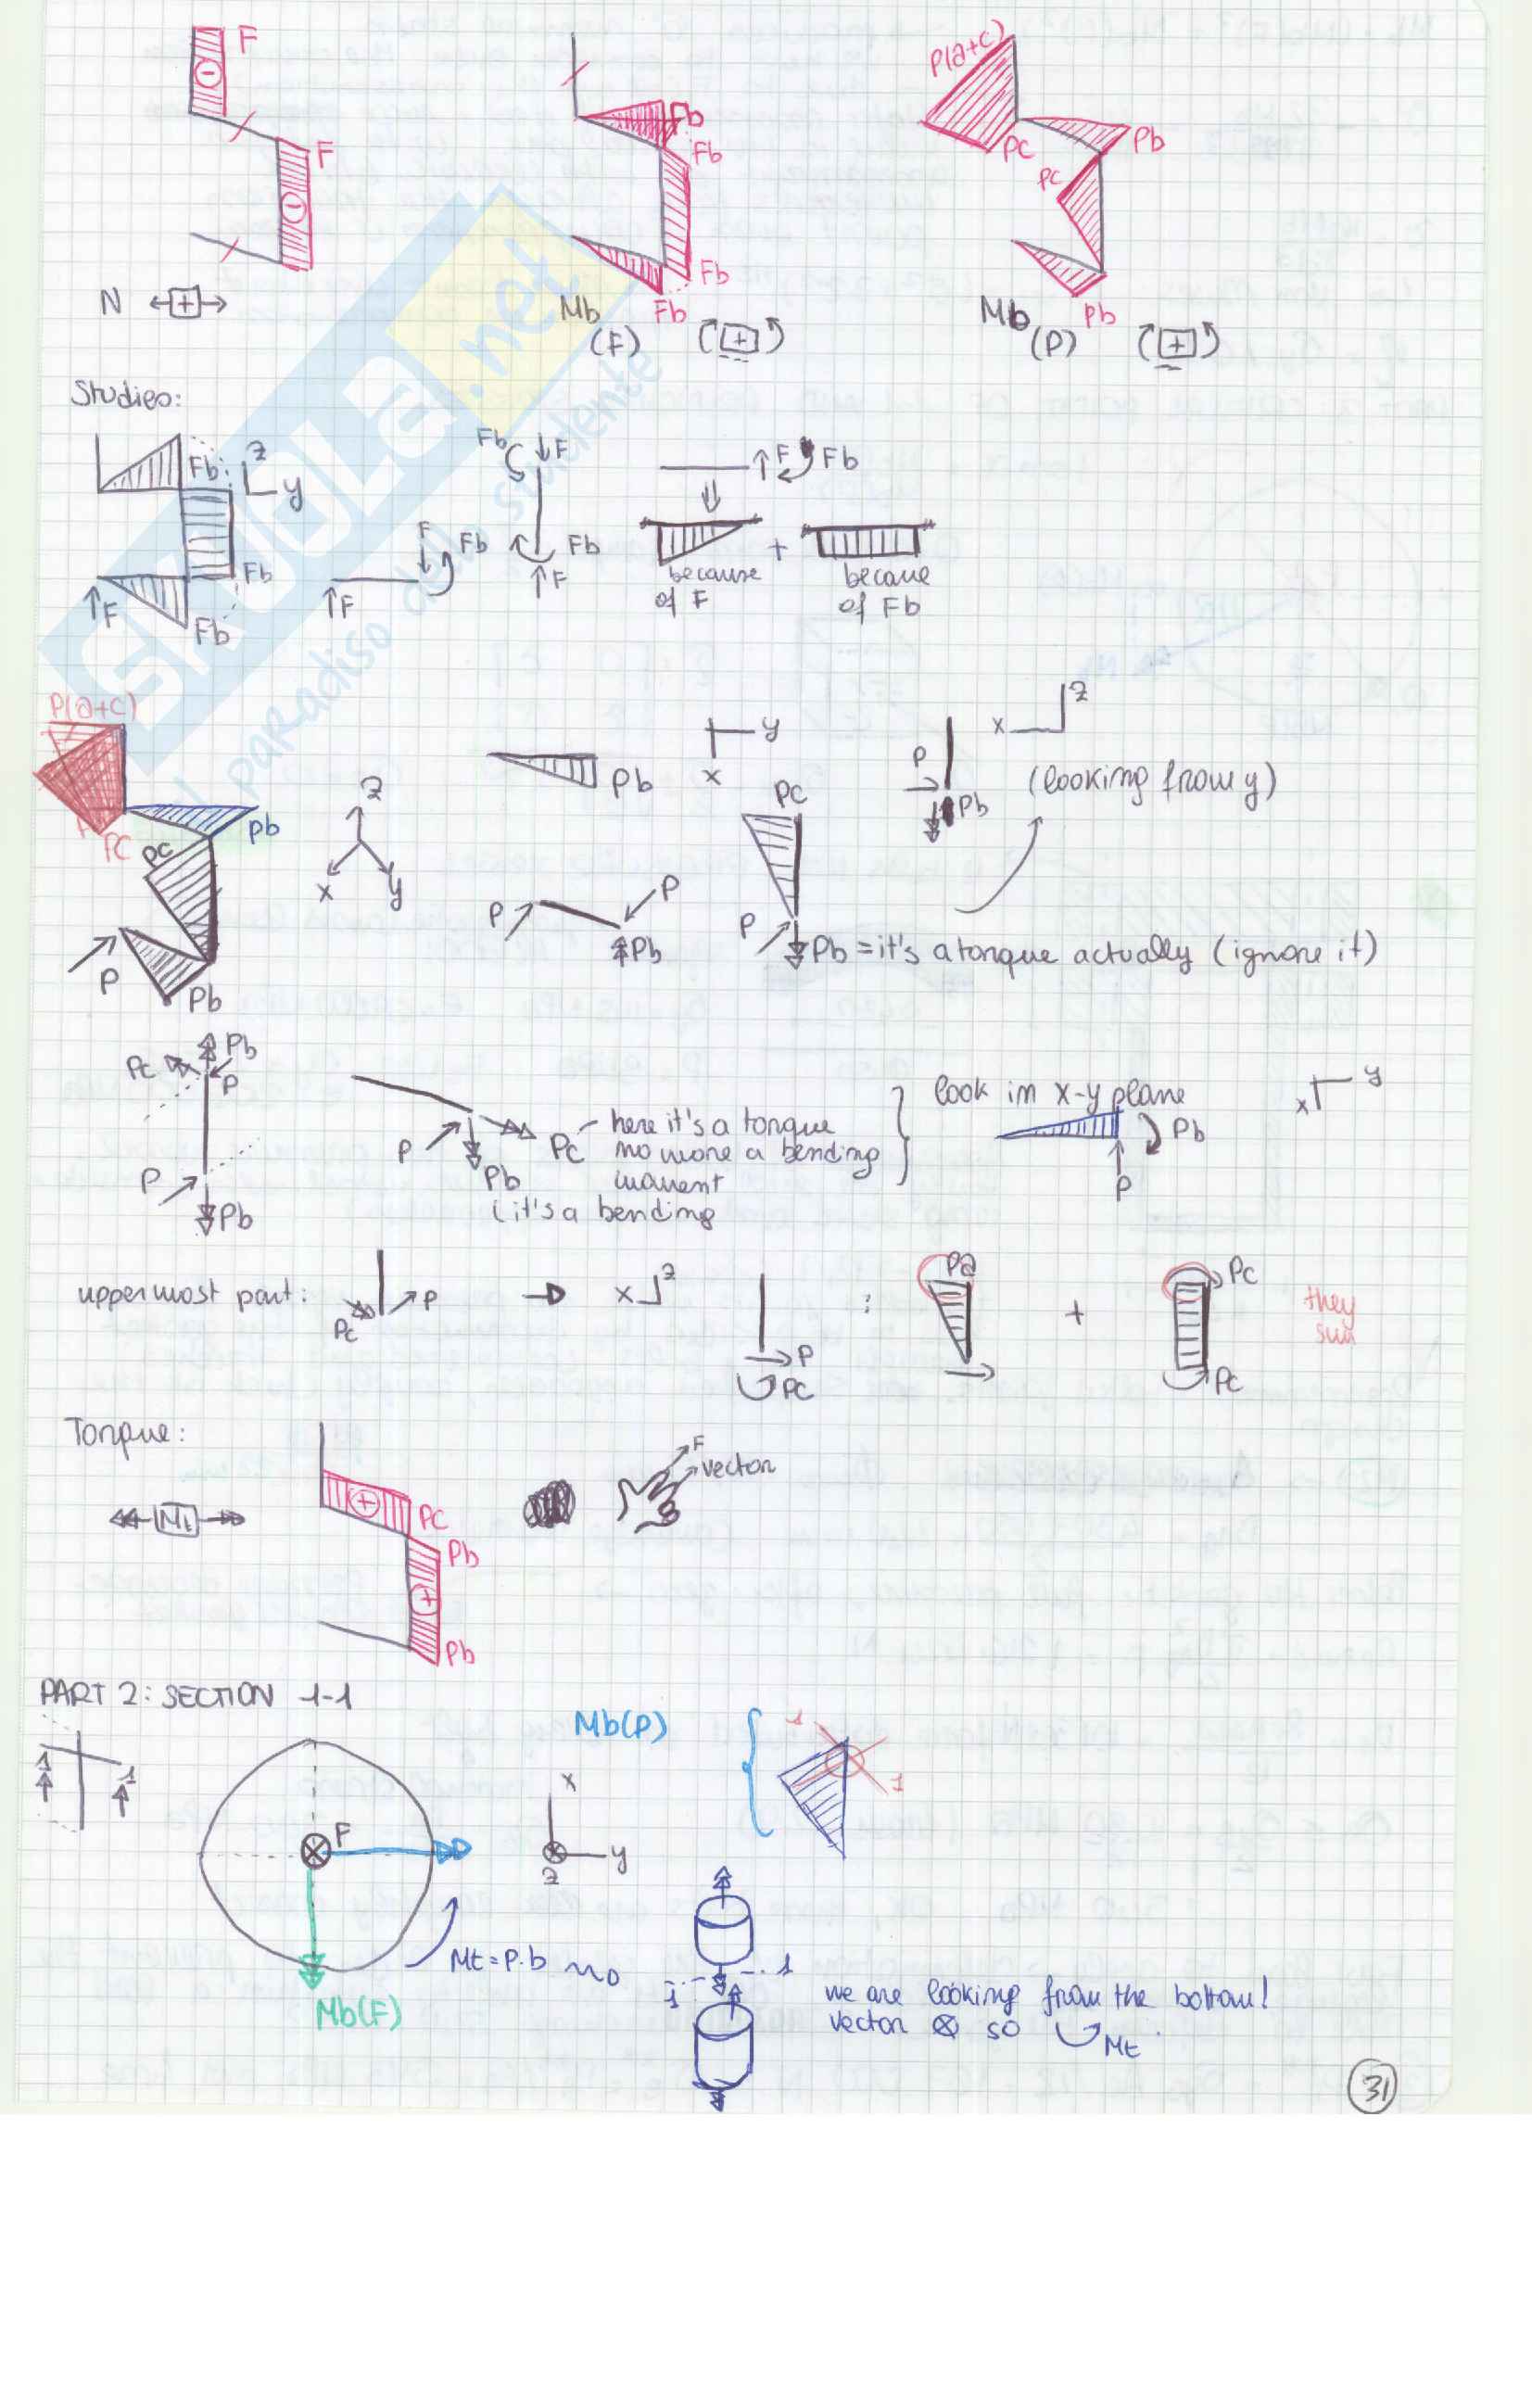 F
F
N
+
Fb
Fb
Fb
Fb
Mb
(F)
+
P(a+c)
Pc
Pb
Pc
Pb
Mb
(P)
+
SKUOLA.net
il paradiso dello studente
Studies:
Fb
z
y
Fb
F
Fb
F
F
Fb
Fb
F
Fb
F
F
Fb
because
of F
+
becaue
of Fb
P(a+c)
Pc
Pb
Pc
P
Pb
z
x
y
Pb
y
x
P
P
Pb
Pc
P
Pb = it's a torque actually (ignore it)
P
Pb
x
z
(looking from y)
Pc
Pb
P
P
Pb
P
Pb
(it's a bending
Pc
here it's a torque
no more a bending
moment
look in x-y plane
Pb
P
y
x
uppermost part:
Pc
P
x
z
P
Pc
:
Pa
+
Pc
Pc
they
sum
Torque:
Mt
+
Pc
Pb
+
Pb
F
vector
PART 2: SECTION 1-1
1
1
F
Mb(F)
Mt = P·b
Mb(P)
x
y
z
1
1
1
1
we are looking from the bottom!
vector ⊗ so
Mt
31